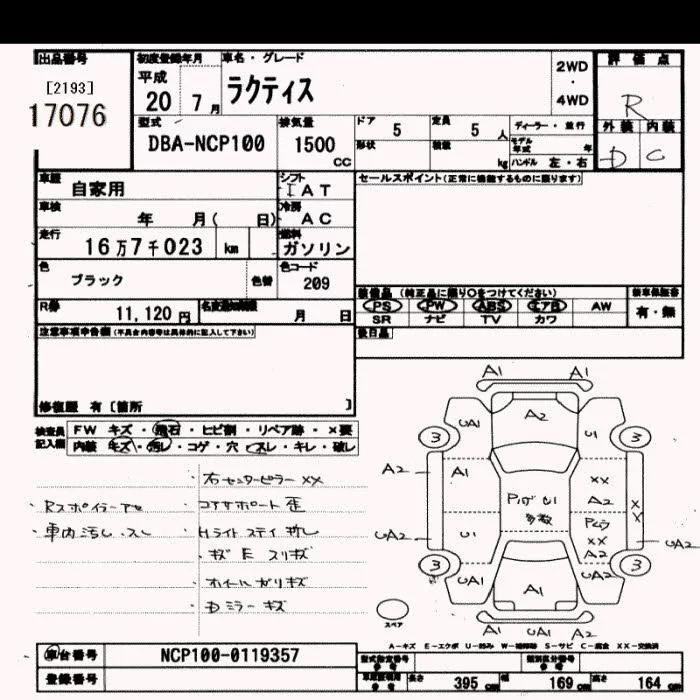 出品番号
[2193]
17076
初度登録年月
平成
20 7月
車名・グレード
ラクティス
2WD
・
4WD
評価点
R
外装 内装
D C
型式
DBA-NCP100
排気量
1500
CC
ドア 5
定員 5 人
ディーラー・並行
形状
積載 kg
モデル年式 年
ハンドル 左・右
車歴
自家用
シフト
I AT
車検
年 月( 日)
冷房
AC
走行
16万7千023 km
燃料
ガソリン
色
ブラック
色替
色コード
209
R券
11,120円
名変期限
月 日
セールスポイント(正常に機能するものに限ります)
装備品 (純正品に限り○をつけてください)
新車保証書
PS PW ABS エアB AW
有・無
SR ナビ TV カワ
後日品
注意事項申告欄(不具合内容等は具体的に記入して下さい)
修復歴 有 [箇所 ]
検査員
記入欄
FW キズ・飛石・ヒビ割・リペア跡・×要
内装 キズ・汚レ・コゲ・穴・スレ・キレ・破レ
・右センターピラー XX
・Rスポイラー
・コアサポート 歪
・車内汚レ・スレ
・Hライト ステイ 折レ
・キズ E スリキズ
・ホイール ガリキズ
・Dミラー キズ
A1 A1
UA1 A2 U1
3 3
A2 A1 XX
A2
Pバゲ U1
多数
X
X
UA2 U1 Pピラ
XX
A2
UA2
3 3
UA1 A1 UA2
スペア
A1 UA1 A2
A-キズ E-エクボ U-凹み W-補修跡 S-サビ C-腐食 XX-交換済
車台番号
NCP100-0119357
登録番号
型式指定番号
類別区分番号
長さ 395 cm
幅 169 cm
高さ 164 cm